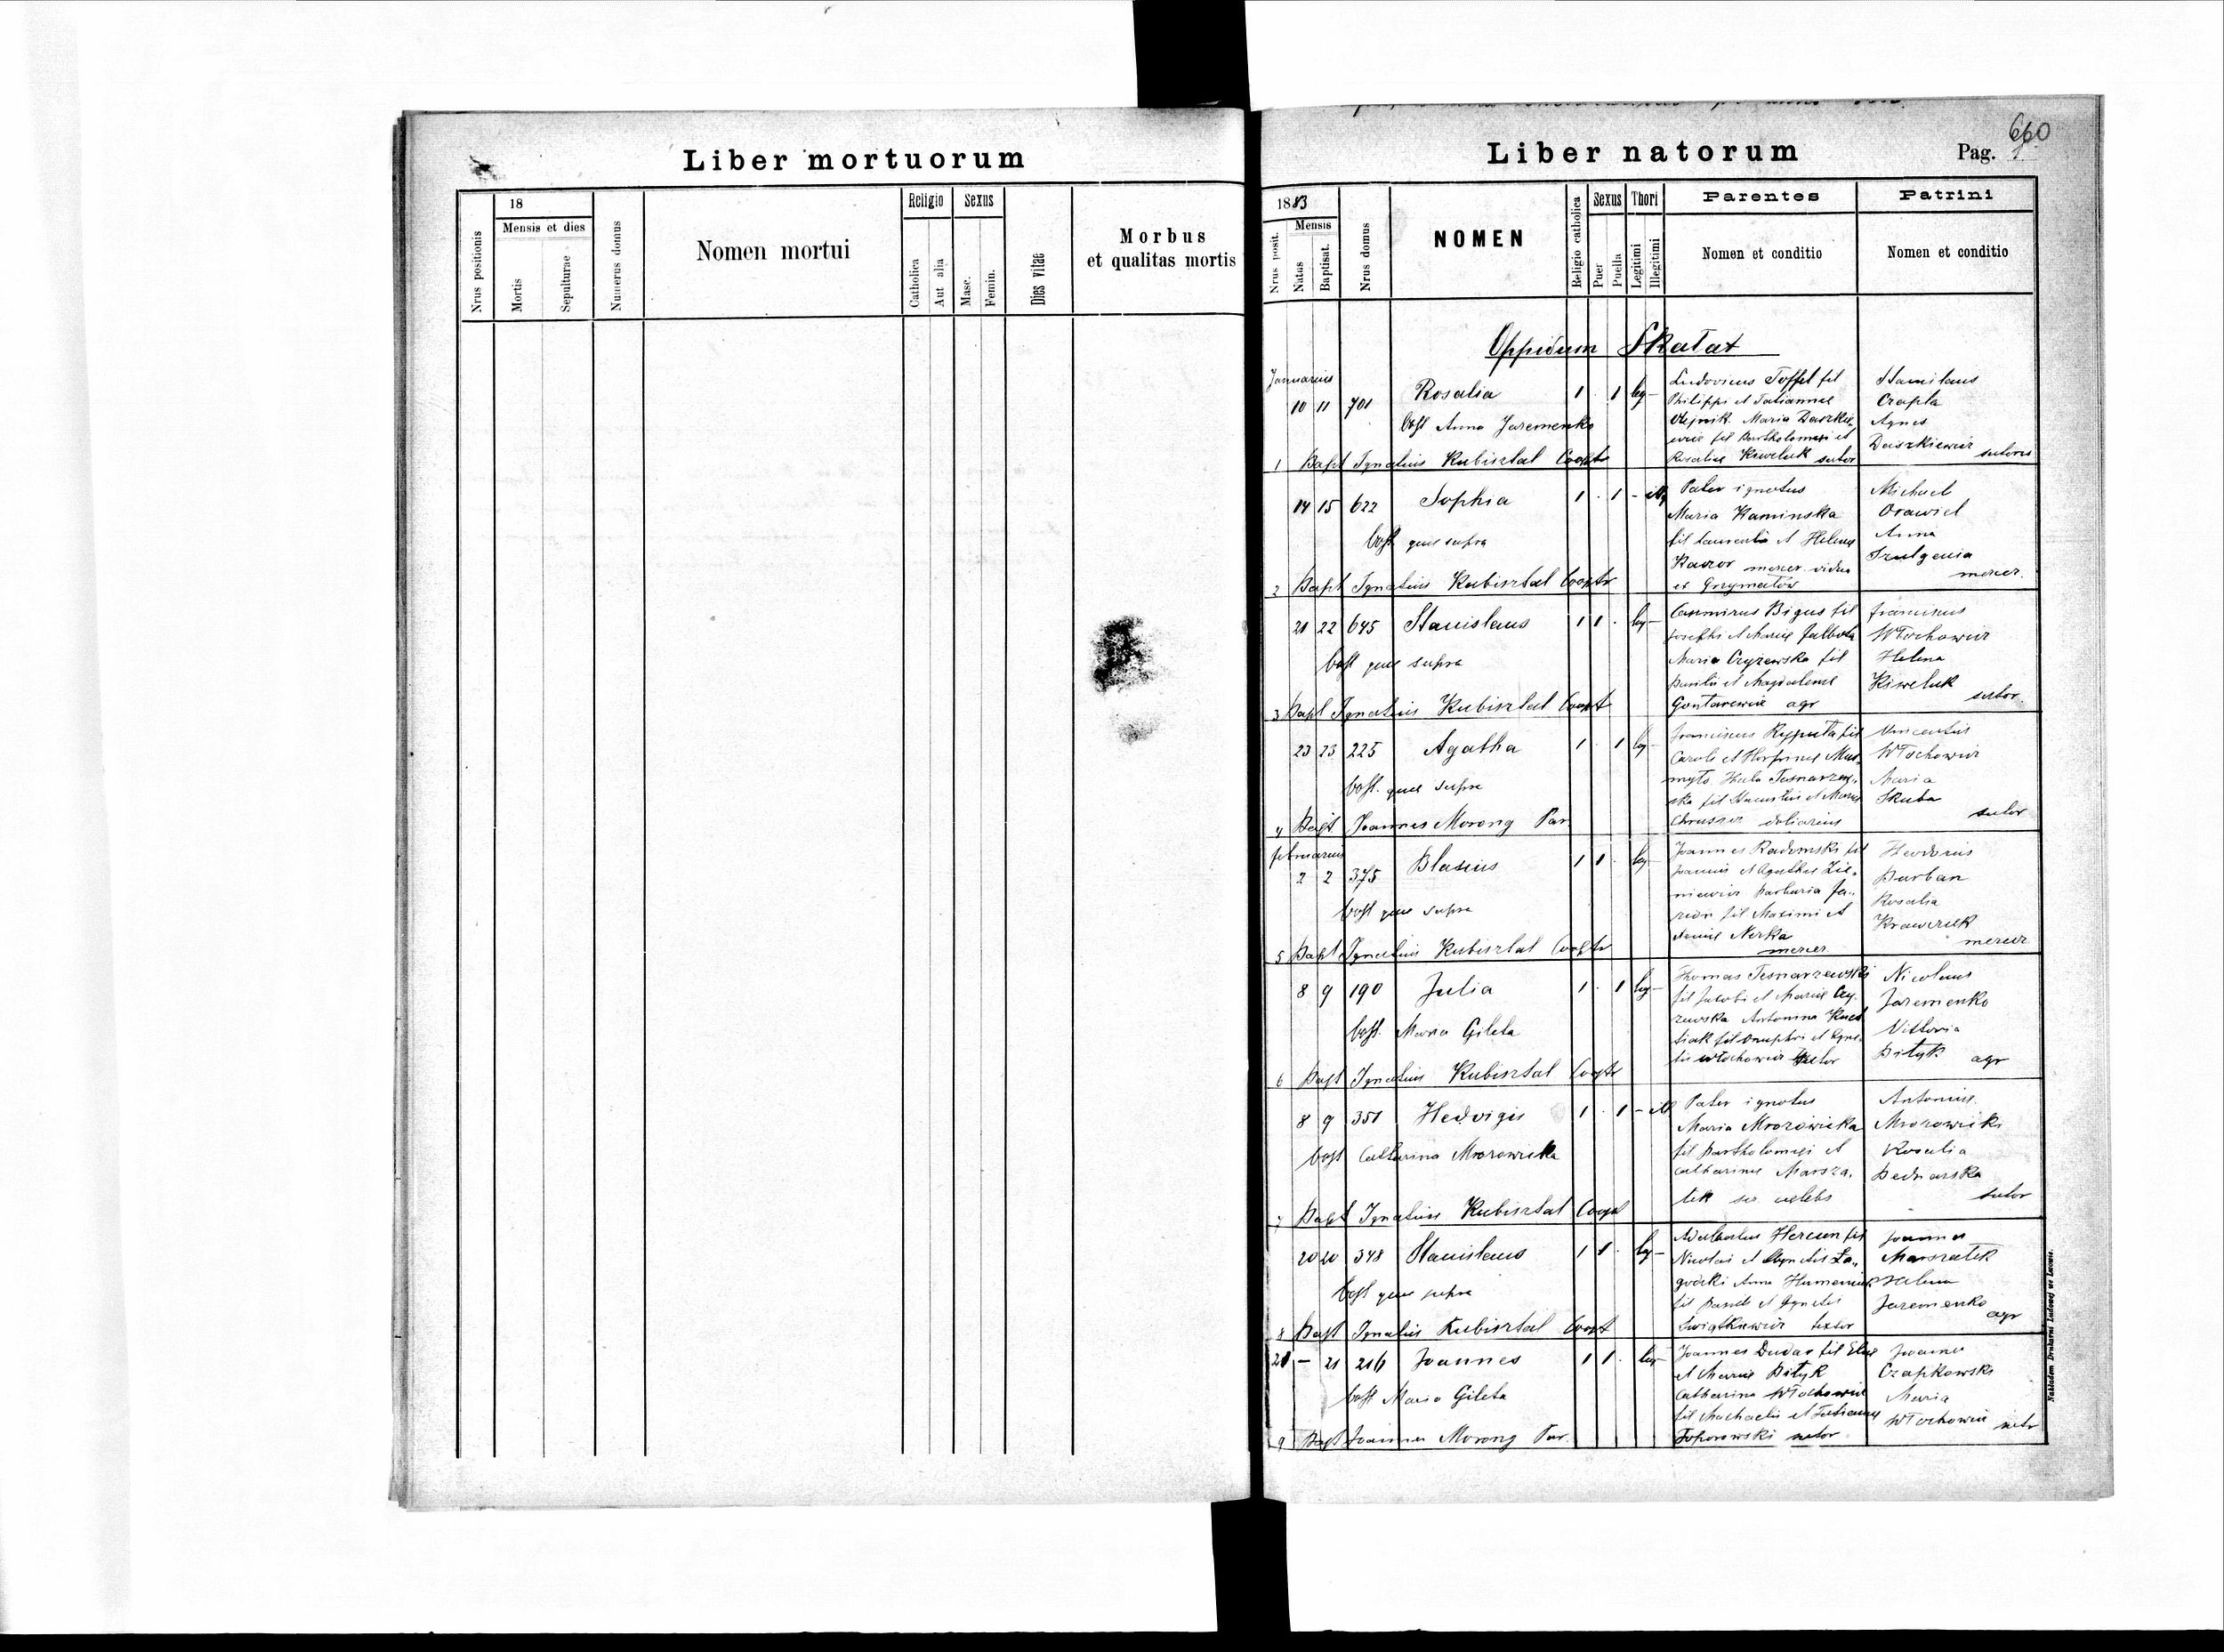 Liber mortuorum
Nrus positionis
18
Mensis et dies
Mortis
Sepulturae
Numerus domus
Nomen mortui
Religio
Catholica
Aut alia
Sexus
Masc.
Femin.
Dies vitae
Morbus
et qualitas mortis
660
Liber natorum
Pag. 1
1883
Mensis
Nrus posit.
Natus
Baptisat.
Nrus domus
NOMEN
Religio catholica
Sexus
Puer
Puella
Thori
Legitimi
Illegitimi
Parentes
Nomen et conditio
Patrini
Nomen et conditio
Oppidum Skałat
Januarius
10 11 701 Rosalia 1 . 1 leg -
Obst Anna Jaremenko
1 Bapt Ignatius Kubisztal Coopr
Ludovicus Toffel fil
Philippi et Tatiannae
Olejnik Maria Daszkie„
wicz fil Bartholomei et
Rosaliae Kiweluk sutor
Stanislaus
Czapla
Agnes
Daszkiewicz sutores
14 15 622 Sophia 1 . 1 - ill
Obst quae supra
2 Bapt Ignatius Kubisztal Cooptr
Pater ignotus
Maria Kaminska
fil Laurentii et Helenae
Kaczor mercer vidua
ex Grzymałów
Michael
Orawiel
Anna
mercer.
21 22 645 Stanislaus 1 1 . leg -
Obst quae supra
3 Bapt Ignatius Kubisztal Coopt
Casimirus Bigus fil
Josephi et Mariae
Maria Czyzewska fil
Basilii et Magdalenae
Gontarewicz agr
Franciscus
Włochowicz
Helena
Kiweluk
sutor.
23 23 225 Agatha 1 . 1 leg -
Obst. quae supra
4 Bapt Joannes Morong Par
Franciscus fil
Caroli et
Chruszcz doliarius
Vincentius
Włochowicz
Maria
Skuba
sutor
Februarius
2 2 375 Blasius 1 1 . leg -
Obst quae supra
5 Bapt Ignatius Kubisztal Cooptr
Joannes Radomski fil
Joannis et Agathae Zie„
niewicz Barbaria
fil Maximi et
Annae Nerka
mercer
Theodorus
Burban
Rosalia
Krawczuk
mercer
8 9 190 Julia 1 . 1 leg -
Obst. Maria Gileta
6 Bapt Ignatius Kubisztal Cooptr
Thomas Tesnarzewski
fil Jacobi et Mariae Czy„
zewska Antonina
fil Onuphri et Agne„
tis Włochowicz sutor
Nicolaus
Jaremenko
Victoria
Bityk agr
8 9 351 Hedvigis 1 . 1 - ill
Obst Catharina Mrozowicka
7 Bapt Ignatius Kubisztal Coopt
Pater ignotus
Maria Mrozowicka
fil Bartholomei et
Catharinae Marsza„
łek caelebs
Antonius
Mrozowicki
Rosalia
Bednarska
sutor
20 20 348 Stanislaus 1 1 . leg -
Obst quae supra
8 Bapt Ignatius Kubisztal Coopt
Adalbertus Hercun fil
Nicolai et Agnetis Za„
gorski Anna Humeniuk
fil Basili et Agnetis
Swiątkiewicz textor
Joannes
Marszałek
Helena
Jaremenko
agr
21 - 21 216 Joannes 1 1 . leg -
Obst Maria Gileta
9 Bapt Joannes Morong Par.
Joannes Dudar fil Eliae
et Mariae Bityk
Catharina Włochowicz
fil Michaelis et Tatianae
Toporowski sutor
Joannes
Czapkowski
Maria
Włochowicz sutor
Nakładem Drukarni Ludowej we Lwowie.